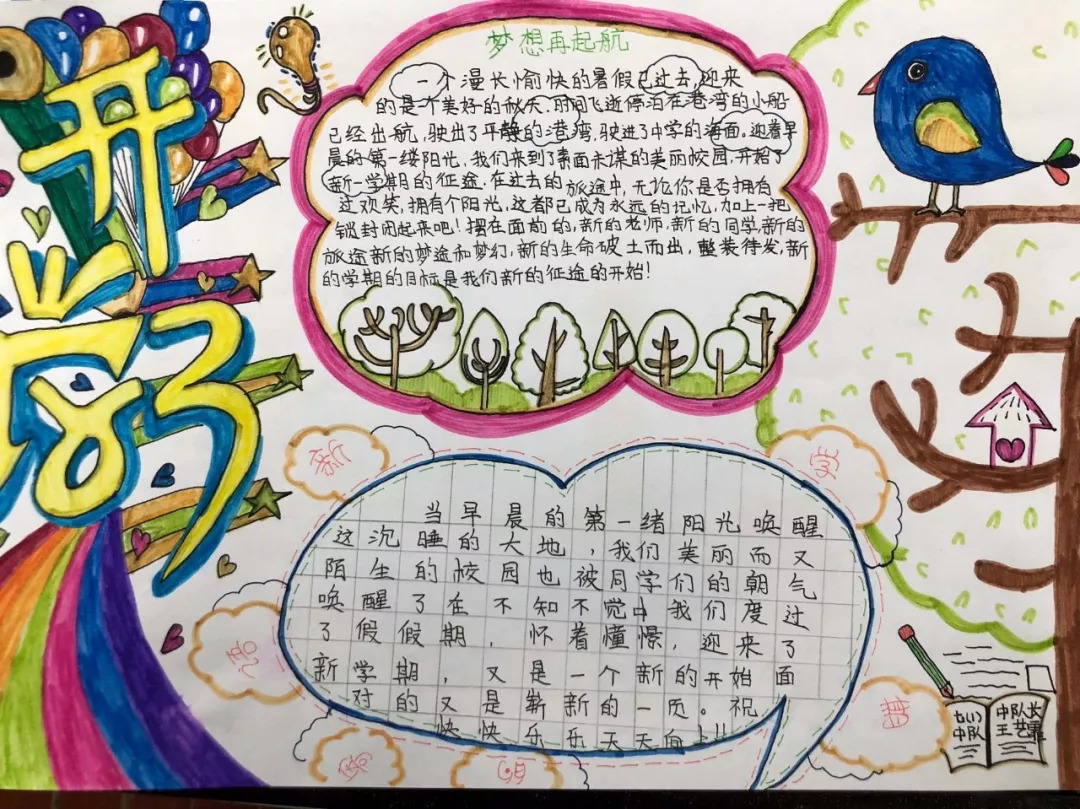 开学了
梦想再起航
一个漫长愉快的暑假已过去,迎来
的是个美好的秋天.时间飞逝停泊在港湾的小船
已经出航,驶出了平静的港湾,驶进了中学的海面。迎着早
晨的第一缕阳光,我们来到了素面未谋的美丽校园,开始了
新一学期的征途.在过去的旅途中,无论你是否拥有
过欢笑,拥有个阳光,这都已成为永远的记忆,加上一把
锁封闭起来吧!摆在面前的,新的老师,新的同学,新的
旅途新的梦途和梦幻,新的生命破土而出,整装待发,新
的学期的目标是我们新的征途的开始!
新
学
当早晨的第一缕阳光唤醒
这沉睡的大地,我们美丽而又
陌生的校园也被同学们的朝气
唤醒了在不知不觉中我们度过
了假假期,怀着憧憬,迎来了
新学期,又是一个新的开始面
对的又是崭新的一页。祝
快快乐乐天天向上!!
期
中队
中队长
王艺霏